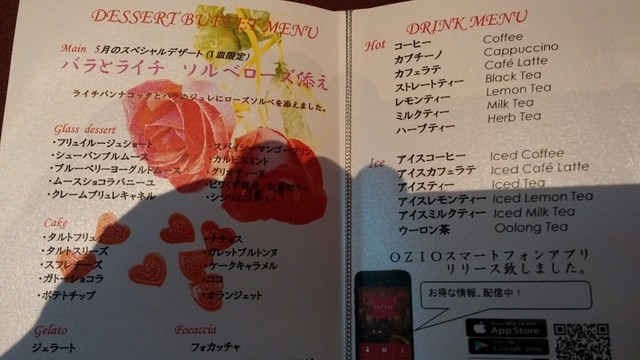 DESSERT BUFFET MENU
Main 5月のスペシャルデザート(1皿限定)
バラとライチ ソルベローズ添え
ライチパンナコッタとバラのジュレにローズソルベを添えました。
Glass dessert
・フリュイルージュショート
・シューパンブルムース
・ブルーベリーヨーグルトムース
・ムースショコラバニーユ
・クレームブリュレキャネル
・スパイシーマンゴープリン
・カルピスミント
・グリオティーヌ
Cake
・タルトフリュイ
・タルトスリーズ
・ガトーショコラ
・ポテトチップ
・ガレットブルトンヌ
・ケークキャラメル
・ココ
・オランジェット
Gelato
ジェラート
Focaccia
フォカッチャ
DRINK MENU
Hot コーヒー Coffee
カプチーノ Cappuccino
カフェラテ Café Latte
ストレートティー Black Tea
レモンティー Lemon Tea
ミルクティー Milk Tea
ハーブティー Herb Tea
Ice アイスコーヒー Iced Coffee
アイスカフェラテ Iced Café Latte
アイスティー Iced Tea
アイスレモンティー Iced Lemon Tea
アイスミルクティー Iced Milk Tea
ウーロン茶 Oolong Tea
OZIOスマートフォンアプリ
リリース致しました。
お得な情報、配信中！
OZIO
App Store
Google play